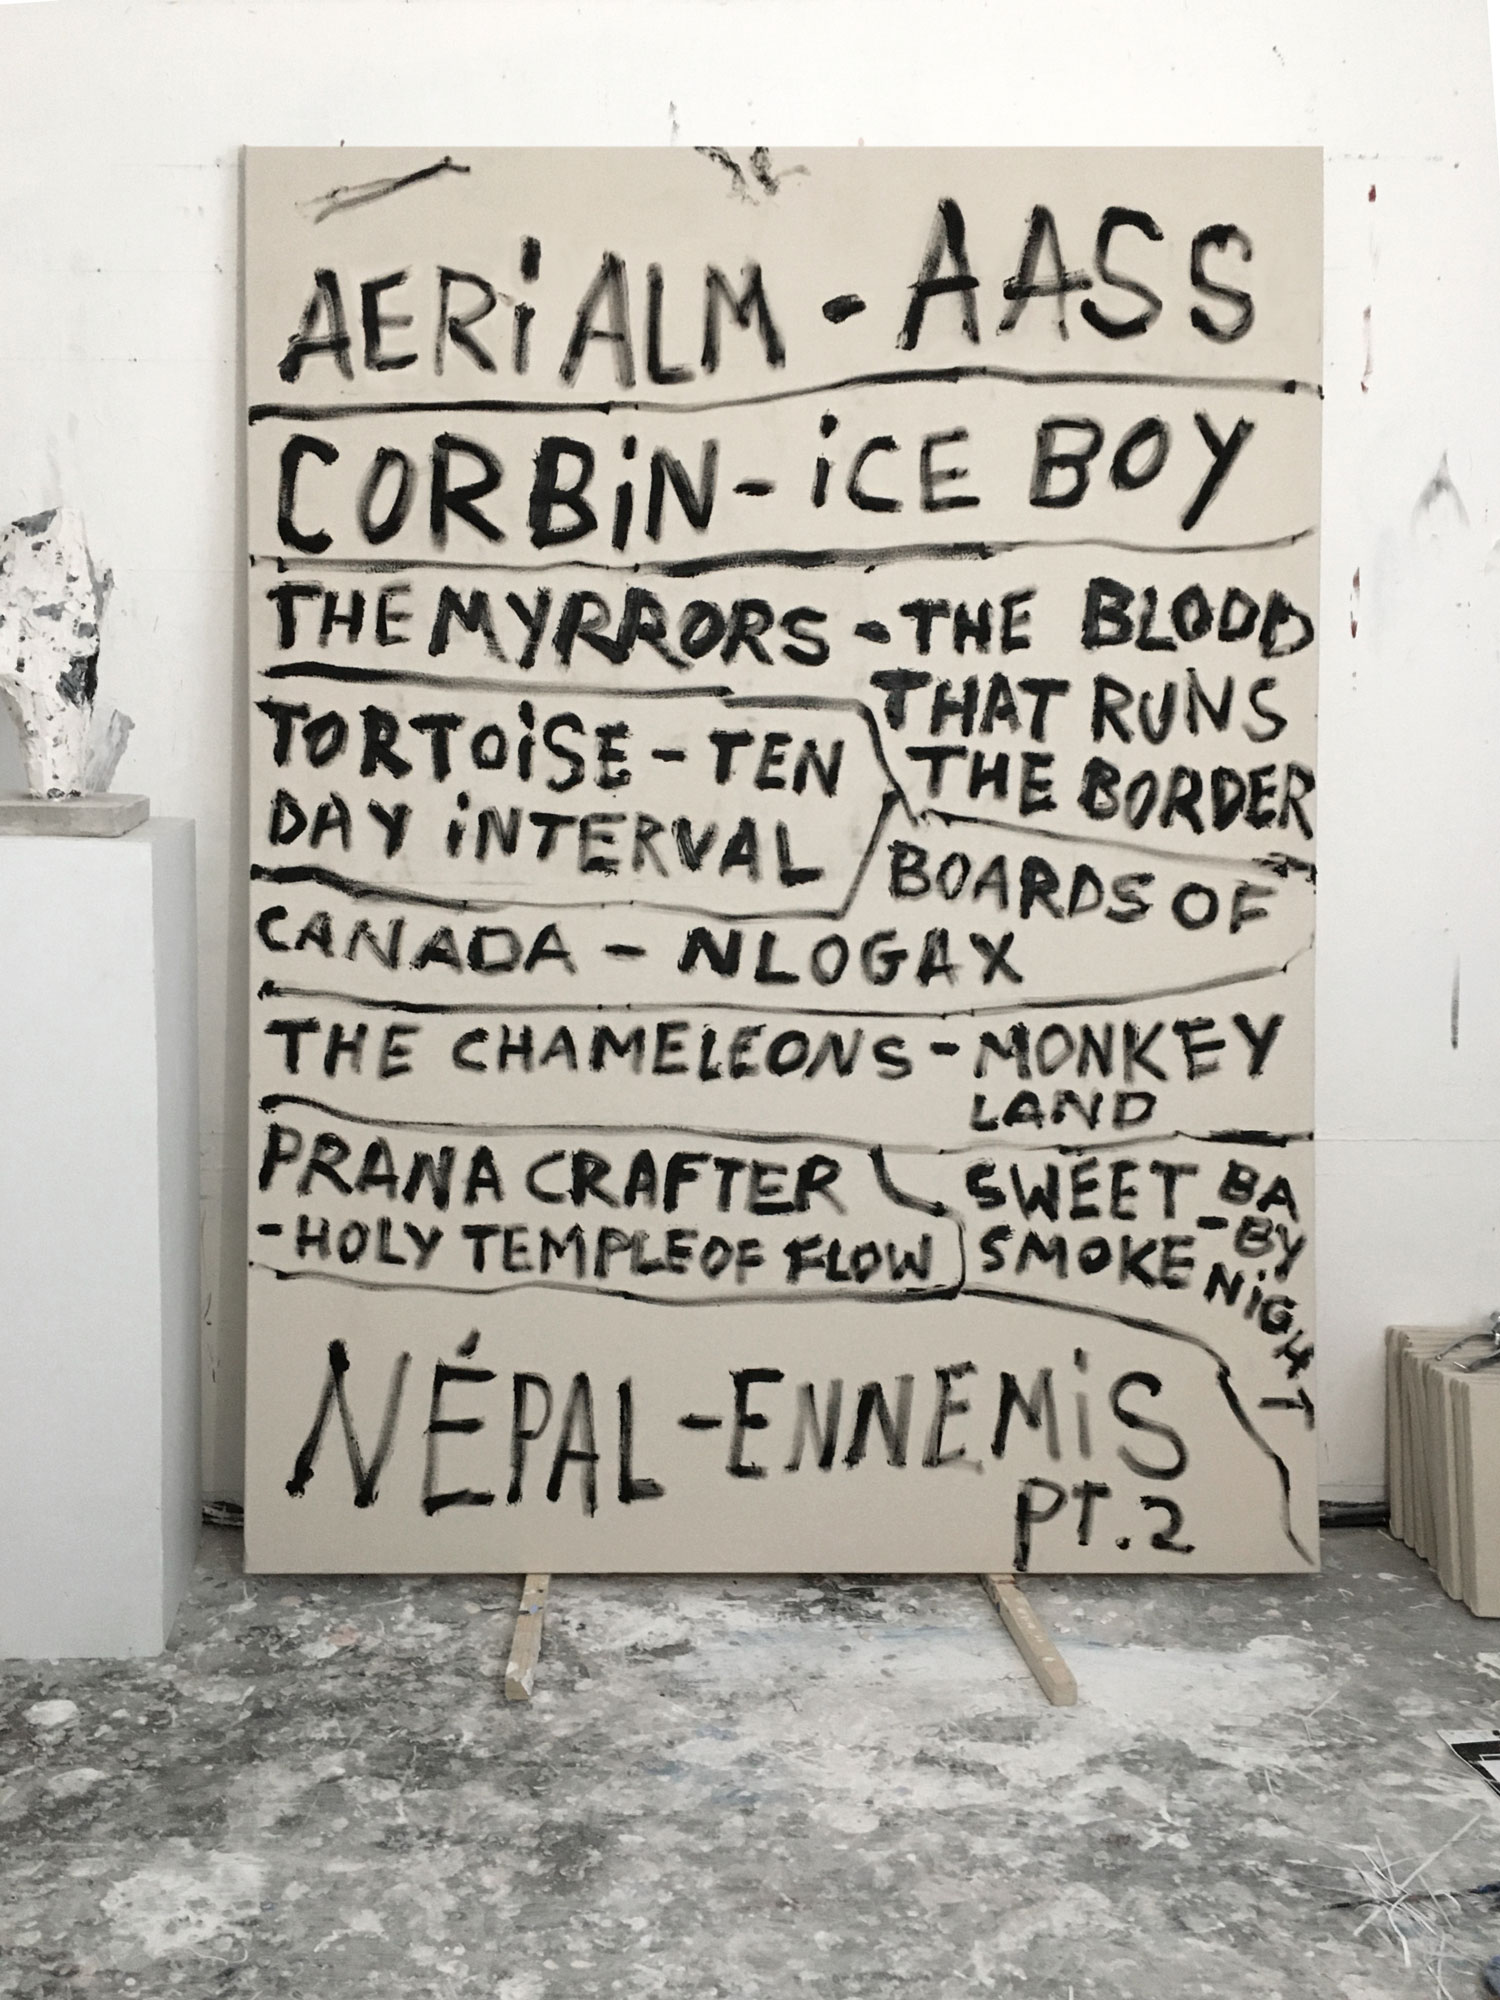 AERiALM - AASS
CORBiN - iCE BOY
THE MYRRORS - THE BLOOD
THAT RUNS
THE BORDER
TORTOiSE - TEN
DAY iNTERVAL
BOARDS OF
CANADA - NLOGAX
THE CHAMELEONS - MONKEY
LAND
PRANA CRAFTER
- HOLY TEMPLE OF FLOW
SWEET
SMOKE
- BA
BY
NiGHT
NÉPAL - ENNEMiS
PT.2